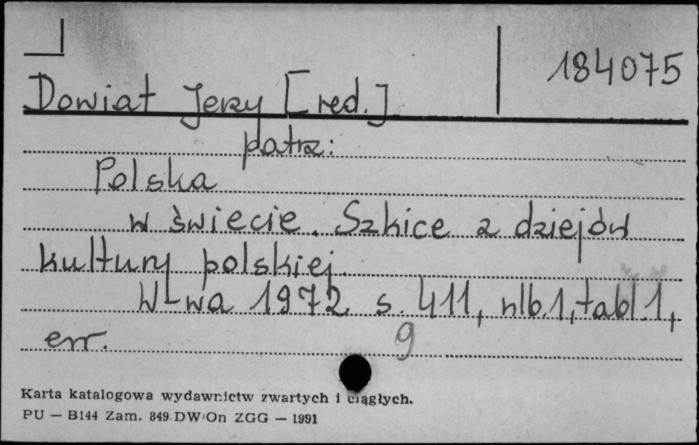 184075
Dowiat Jerzy [red.]
patrz:
Polska
w świecie. Szkice z dziejów
kultury polskiej.
W-wa 1972 s. 411, nlb 1, tabl 1,
err.
9
Karta katalogowa wydawnictw zwartych i ciągłych.
PU — B144 Zam. 849 DW/On ZGG — 1991